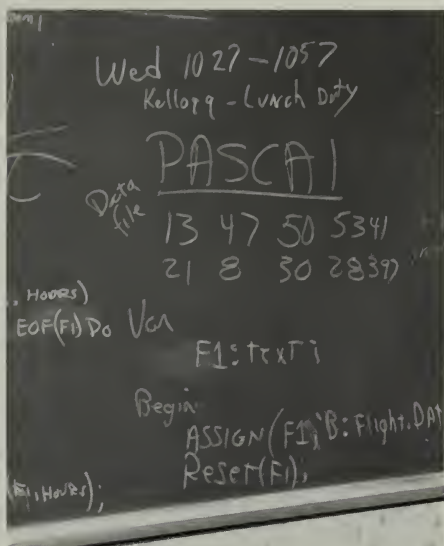 Wed 1027-1057
Kellogg - Lunch Duty
PASCAl
Data file
13 47 50 5341
21 8 30 28397
, Hours)
EOF(F1) Do Var
F1: text;
Begin
ASSIGN(F1,'B:Flight.DAT
Reset(F1);
, Hours);